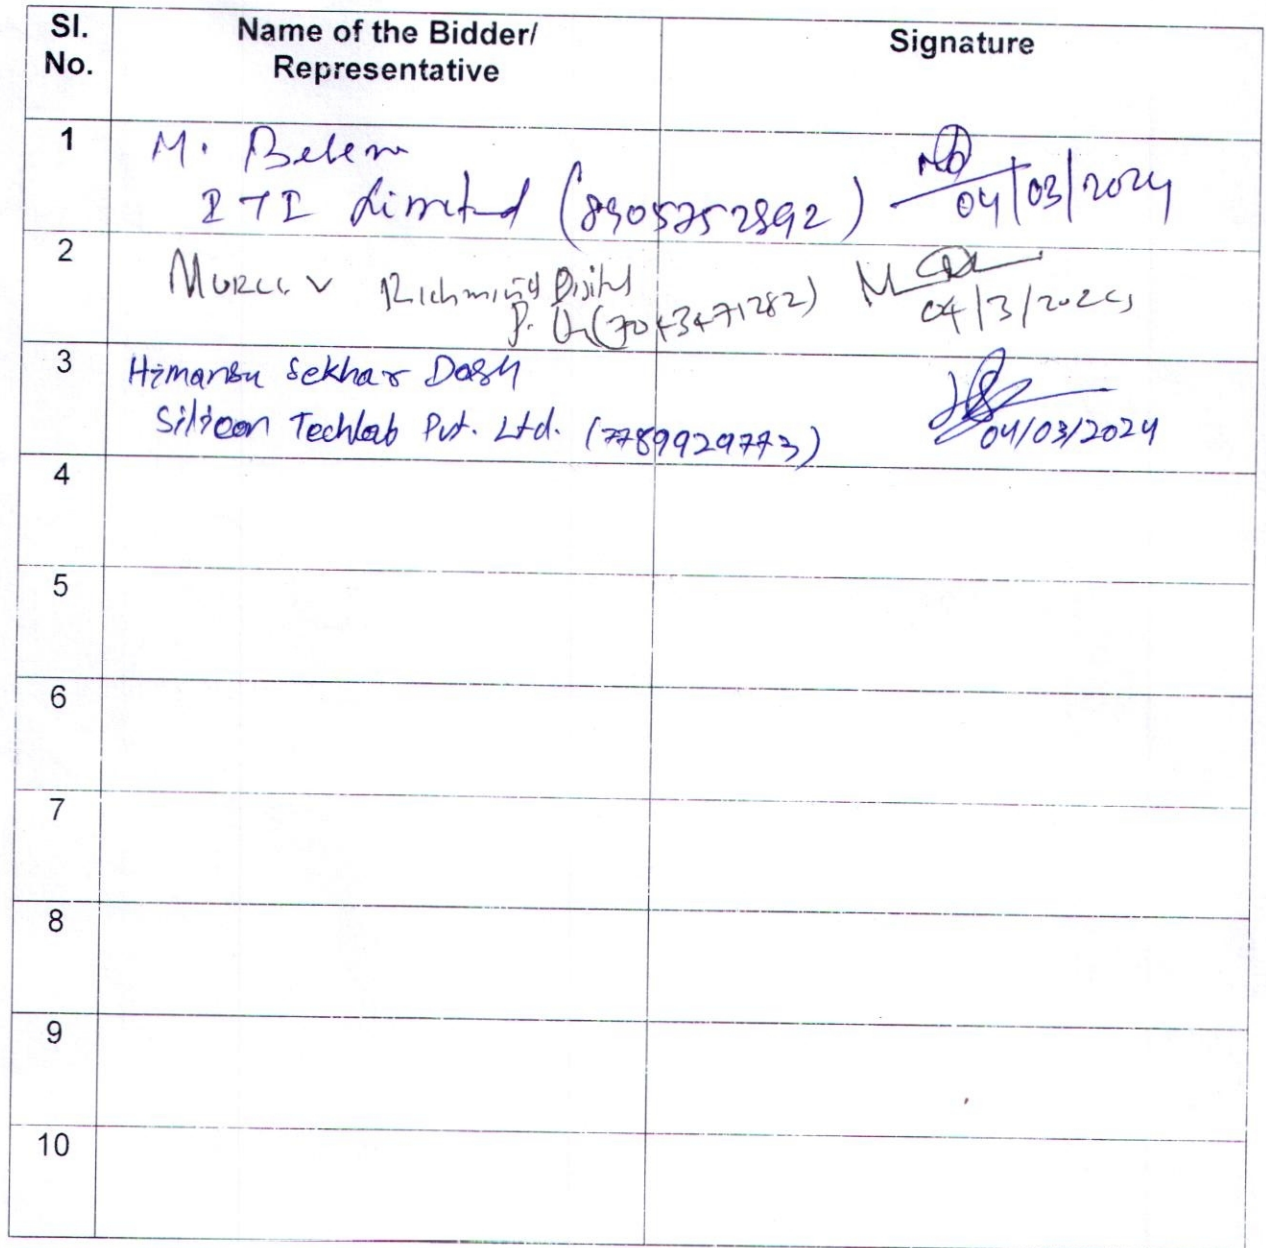 Sl. No.
Name of the Bidder/
Representative
Signature
1
M.
ITI Limited (8905252892)
04/03/2024
2
V Digital
P. (7043471282)
04/3/2024
3
Himansu Sekhar Dash
Silicon Techlab Pvt. Ltd. (7789929773)
04/03/2024
4
5
6
7
8
9
10